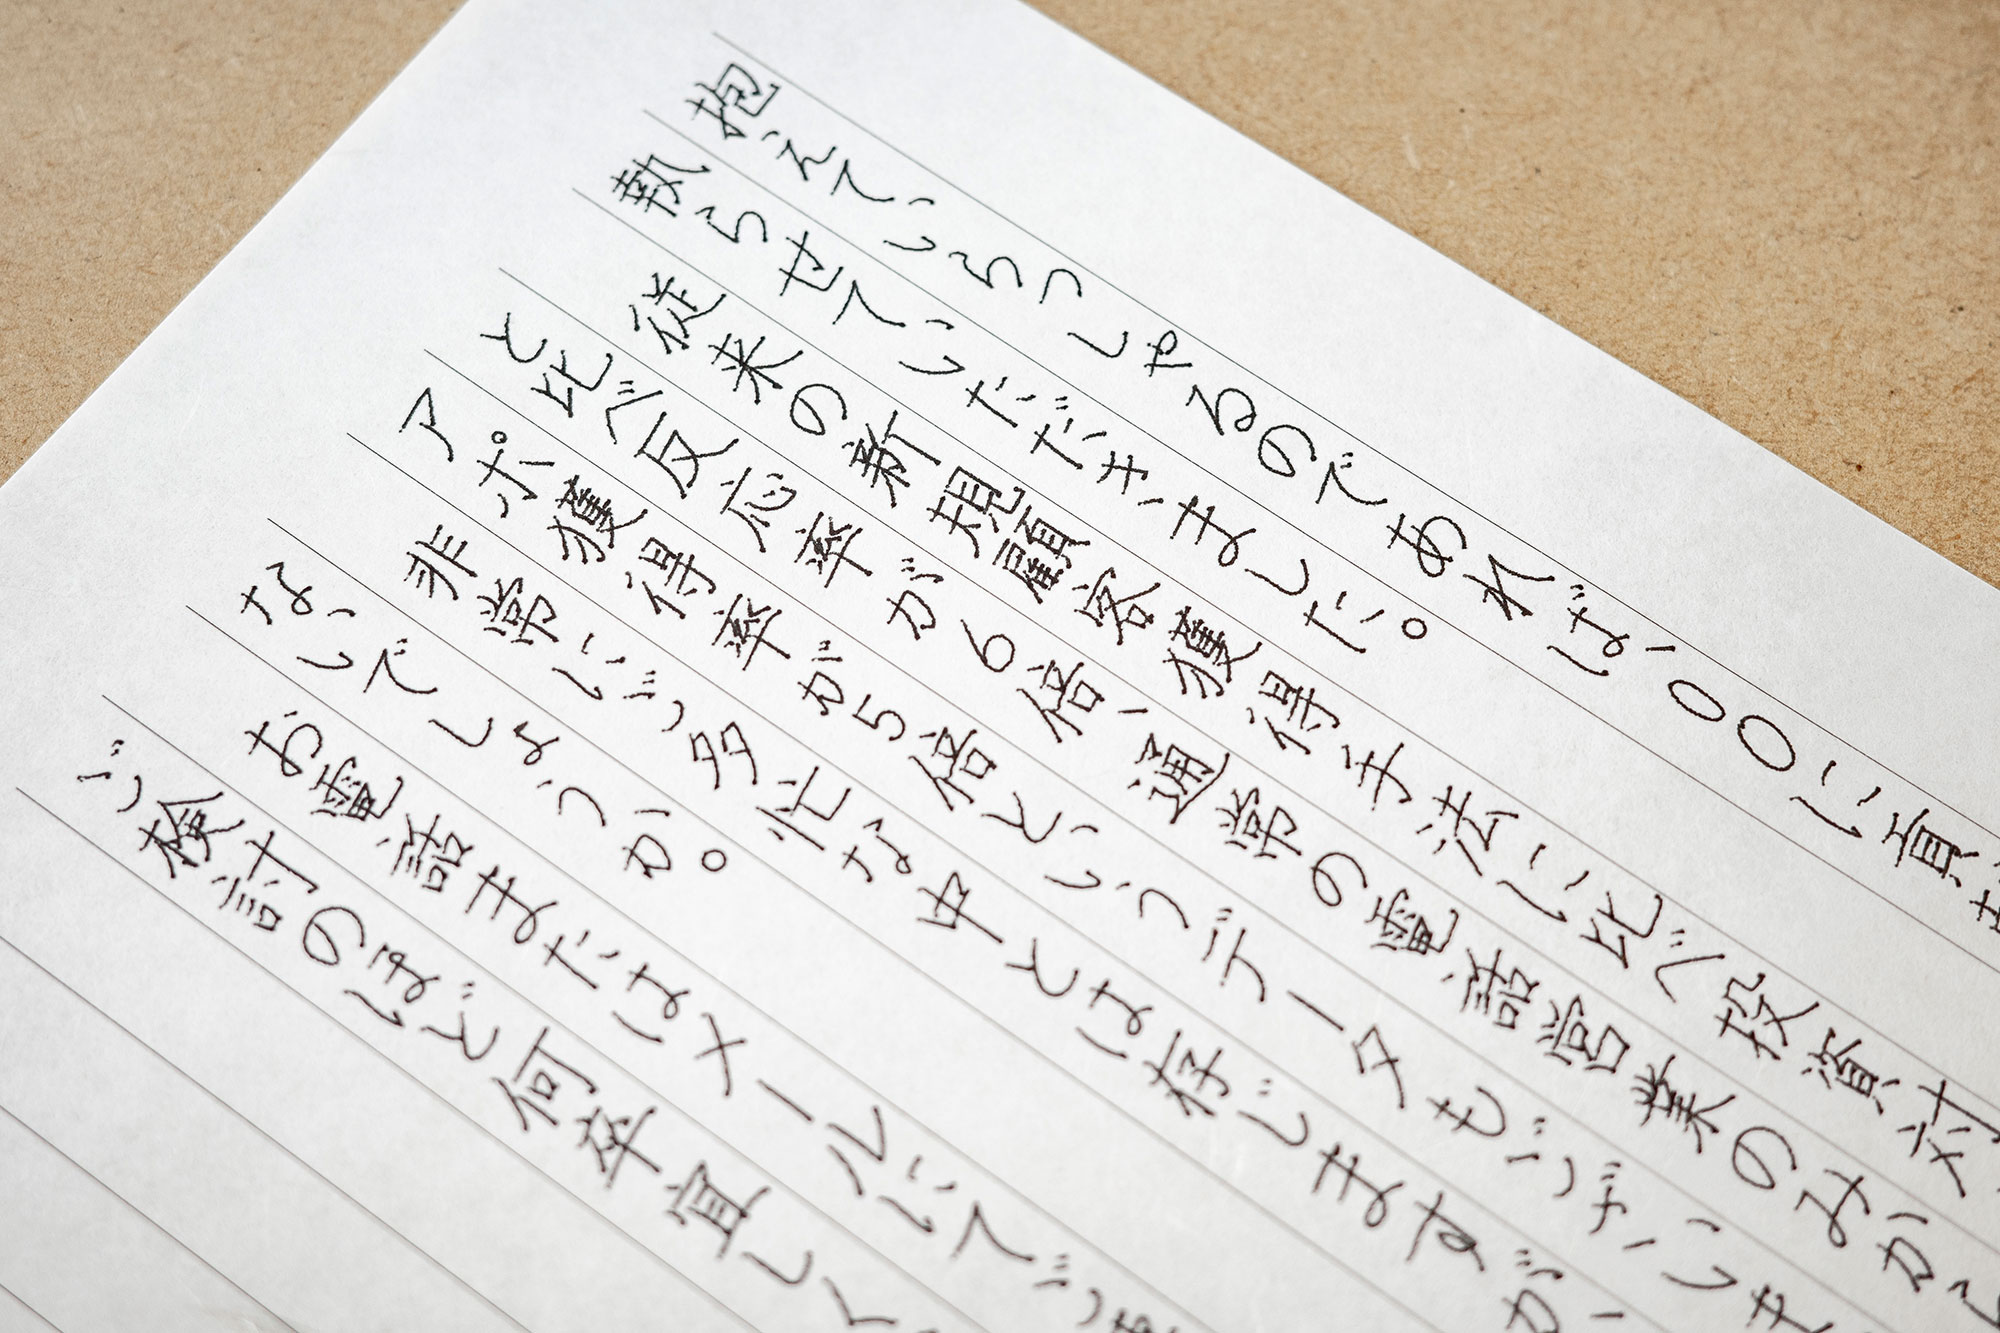 抱えていらっしゃるのであれば、〇〇に貢
執らせていただきました。
従来の新規顧客獲得手法に比べ投資対
と比べ反応率が6倍、通常の電話営業のみから
アポ獲得率が5倍というデータもございま
非常にご多忙な中とは存じますが、
ないでしょうか。
お電話またはメールにてご
ご検討のほど何卒宜しく